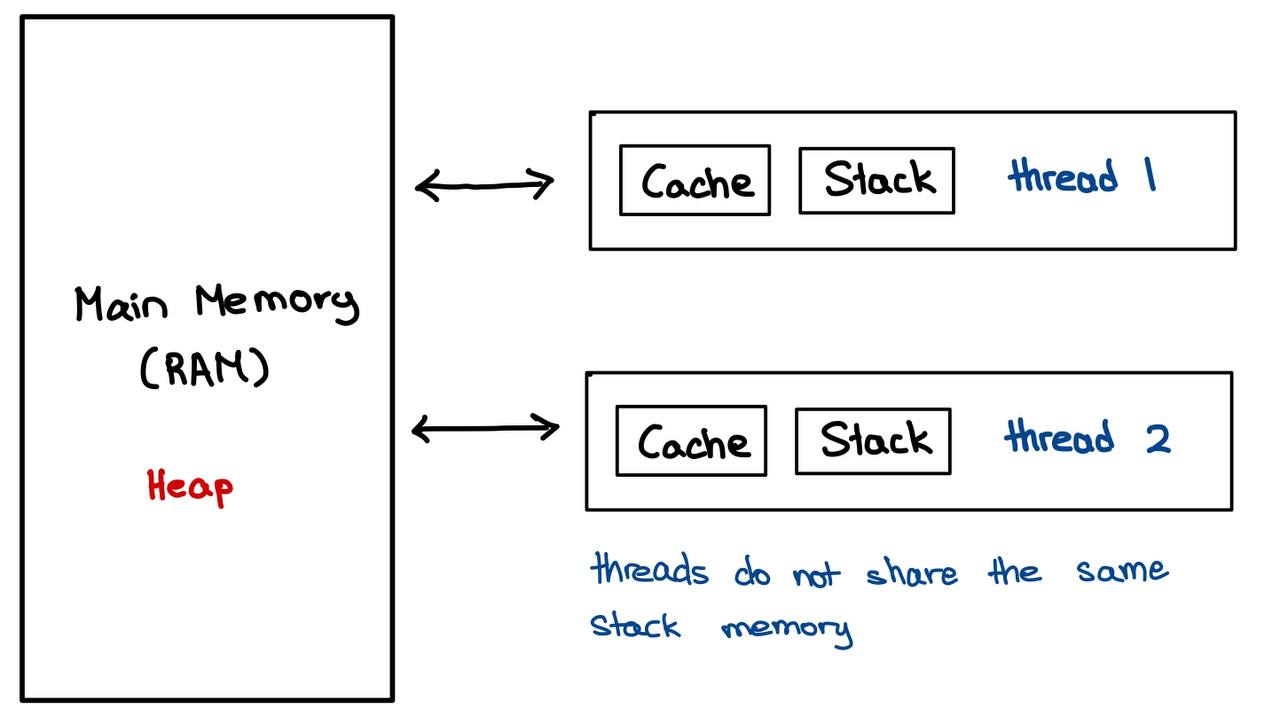 Main Memory
(RAM)
Heap
Cache
Stack
thread 1
Cache
Stack
thread 2
threads do not share the same
stack memory